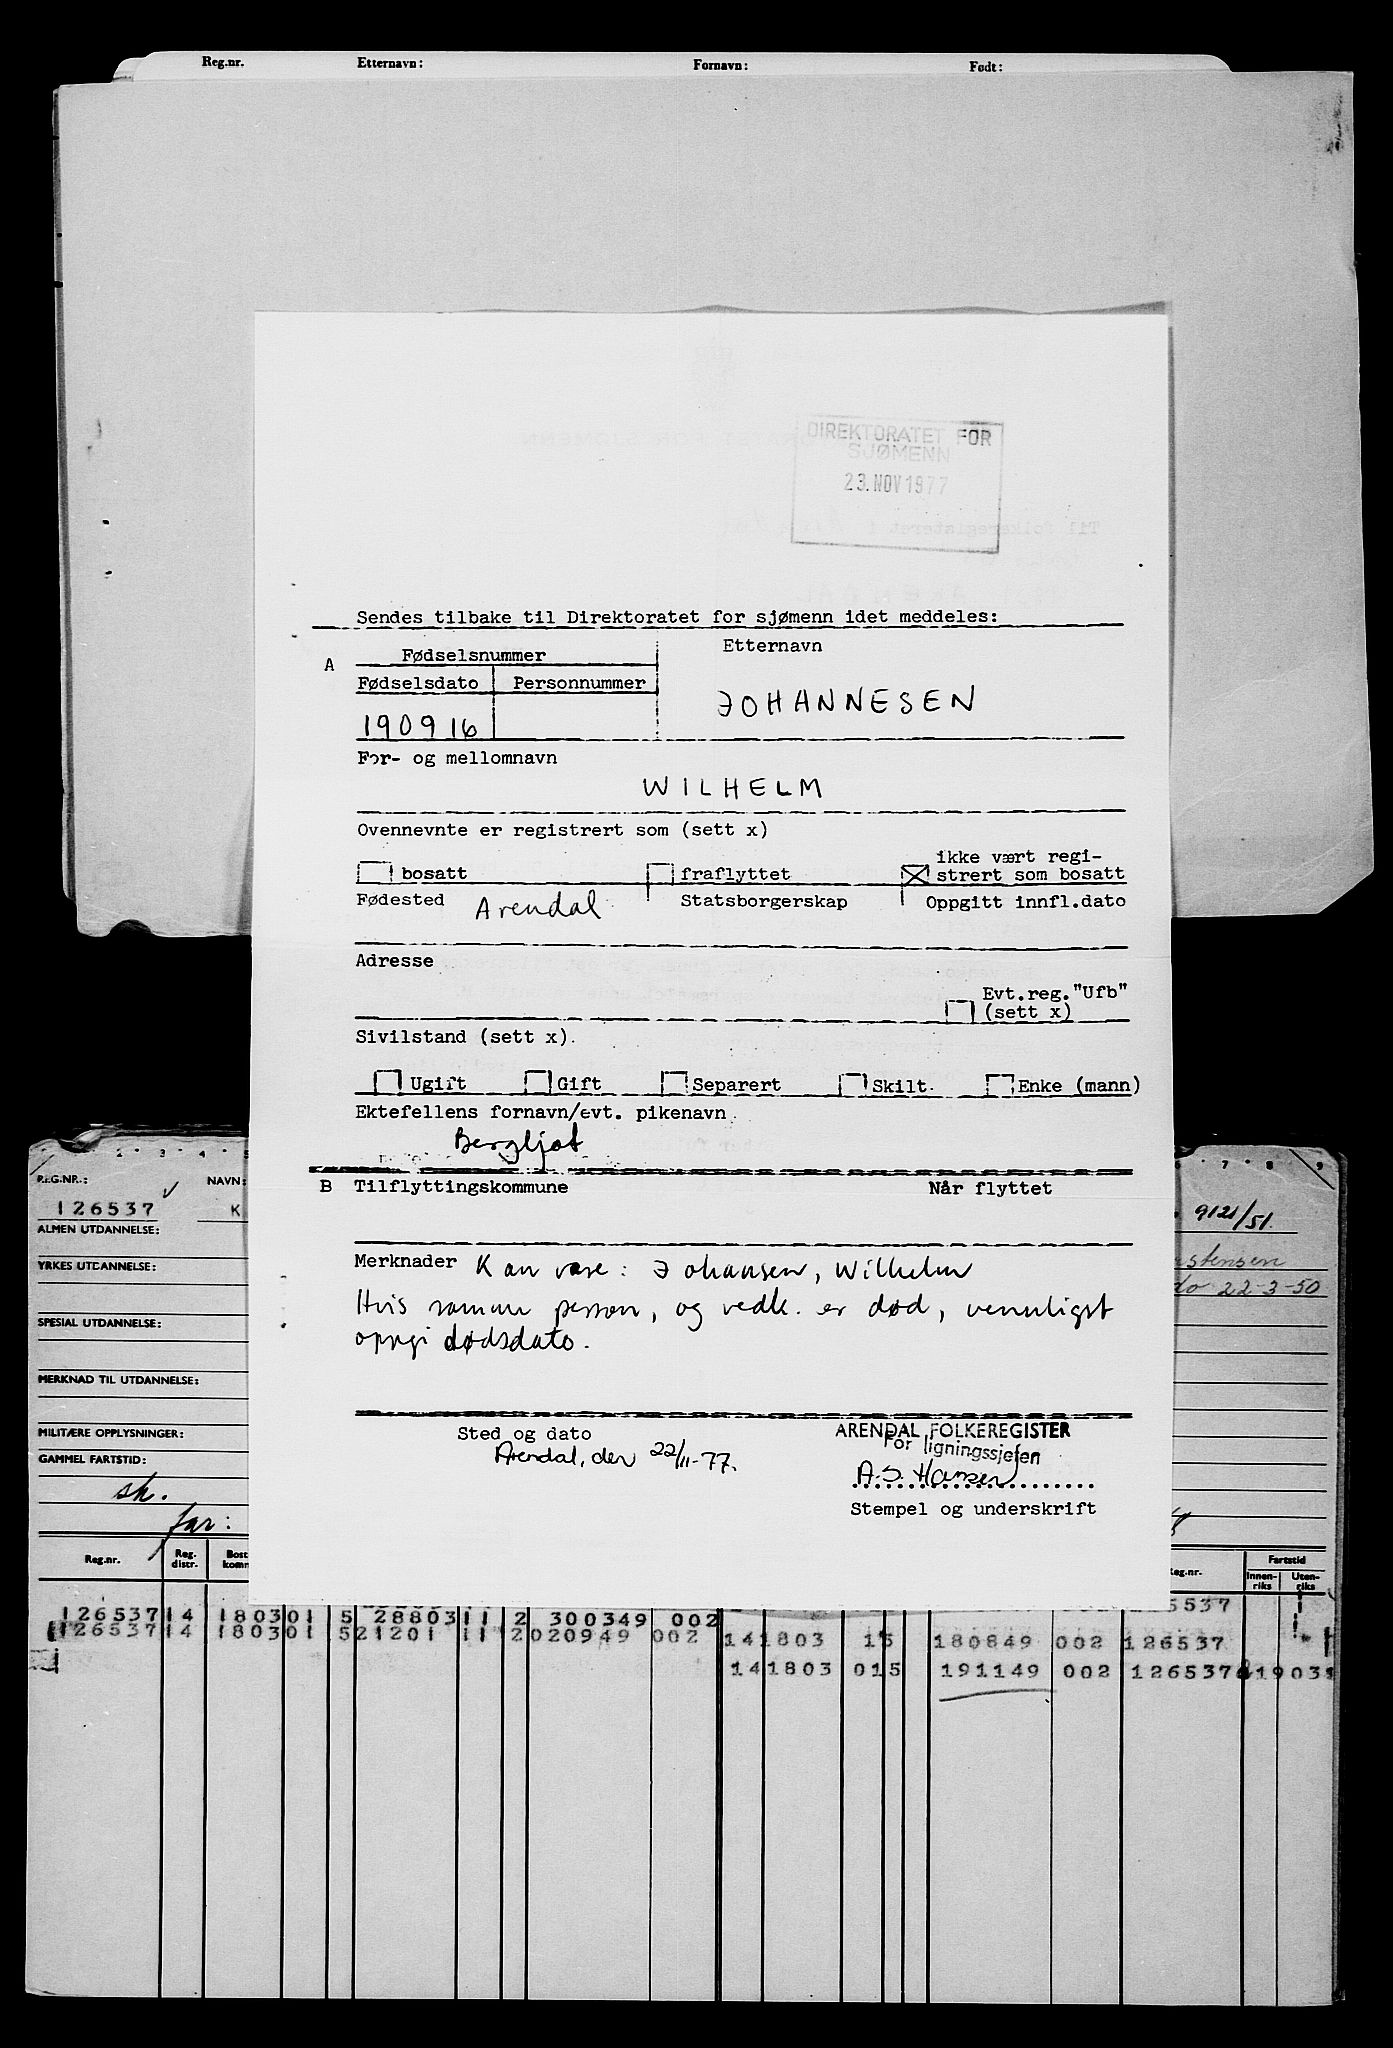 Reg.nr. Etternavn: Fornavn: Født:
DIREKTORATET FOR
SJØMENN
23. NOV 1977
Sendes tilbake til Direktoratet for sjømenn idet meddeles:
A Fødselsnummer Etternavn
Fødselsdato Personnummer
190916 JOHANNESEN
For- og mellomnavn
WILHELM
Ovennevnte er registrert som (sett x)
bosatt fraflyttet ikke vært regi-
strert som bosatt
Fødested Arendal Statsborgerskap Oppgitt innfl.dato
Adresse
Evt.reg."Ufb"
(sett x)
Sivilstand (sett x).
Ugift Gift Separert Skilt. Enke (mann)
Ektefellens fornavn/evt. pikenavn
Bergljot
B Tilflyttingskommune Når flyttet
Merknader Kan være: Johansen, Wilhelm
Hvis samme person, og vedk. er død, vennligst
oppgi dødsdato.
Sted og dato ARENDAL FOLKEREGISTER
Arendal, den 22/11-77. For ligningssjefen
A.S. Hansen
Stempel og underskrift
REG.NR.: NAVN:
126537 K 9121/51
ALMEN UTDANNELSE:
YRKES UTDANNELSE: stensen
do 22-3-50
SPESIAL UTDANNELSE:
MERKNAD TIL UTDANNELSE:
MILITÆRE OPPLYSNINGER:
GAMMEL FARTSTID:
sk.
far:
Reg.nr. Reg. distr. Bost komm eg.nr. Fartstid
Innen-riks Uten-riks
126537 14 180301 5 28803 11 2 300349 002 5537
126537 14 180301 5 21201 11 2 020949 002 141803 15 180849 002 126537
141803 015 191149 002 126537